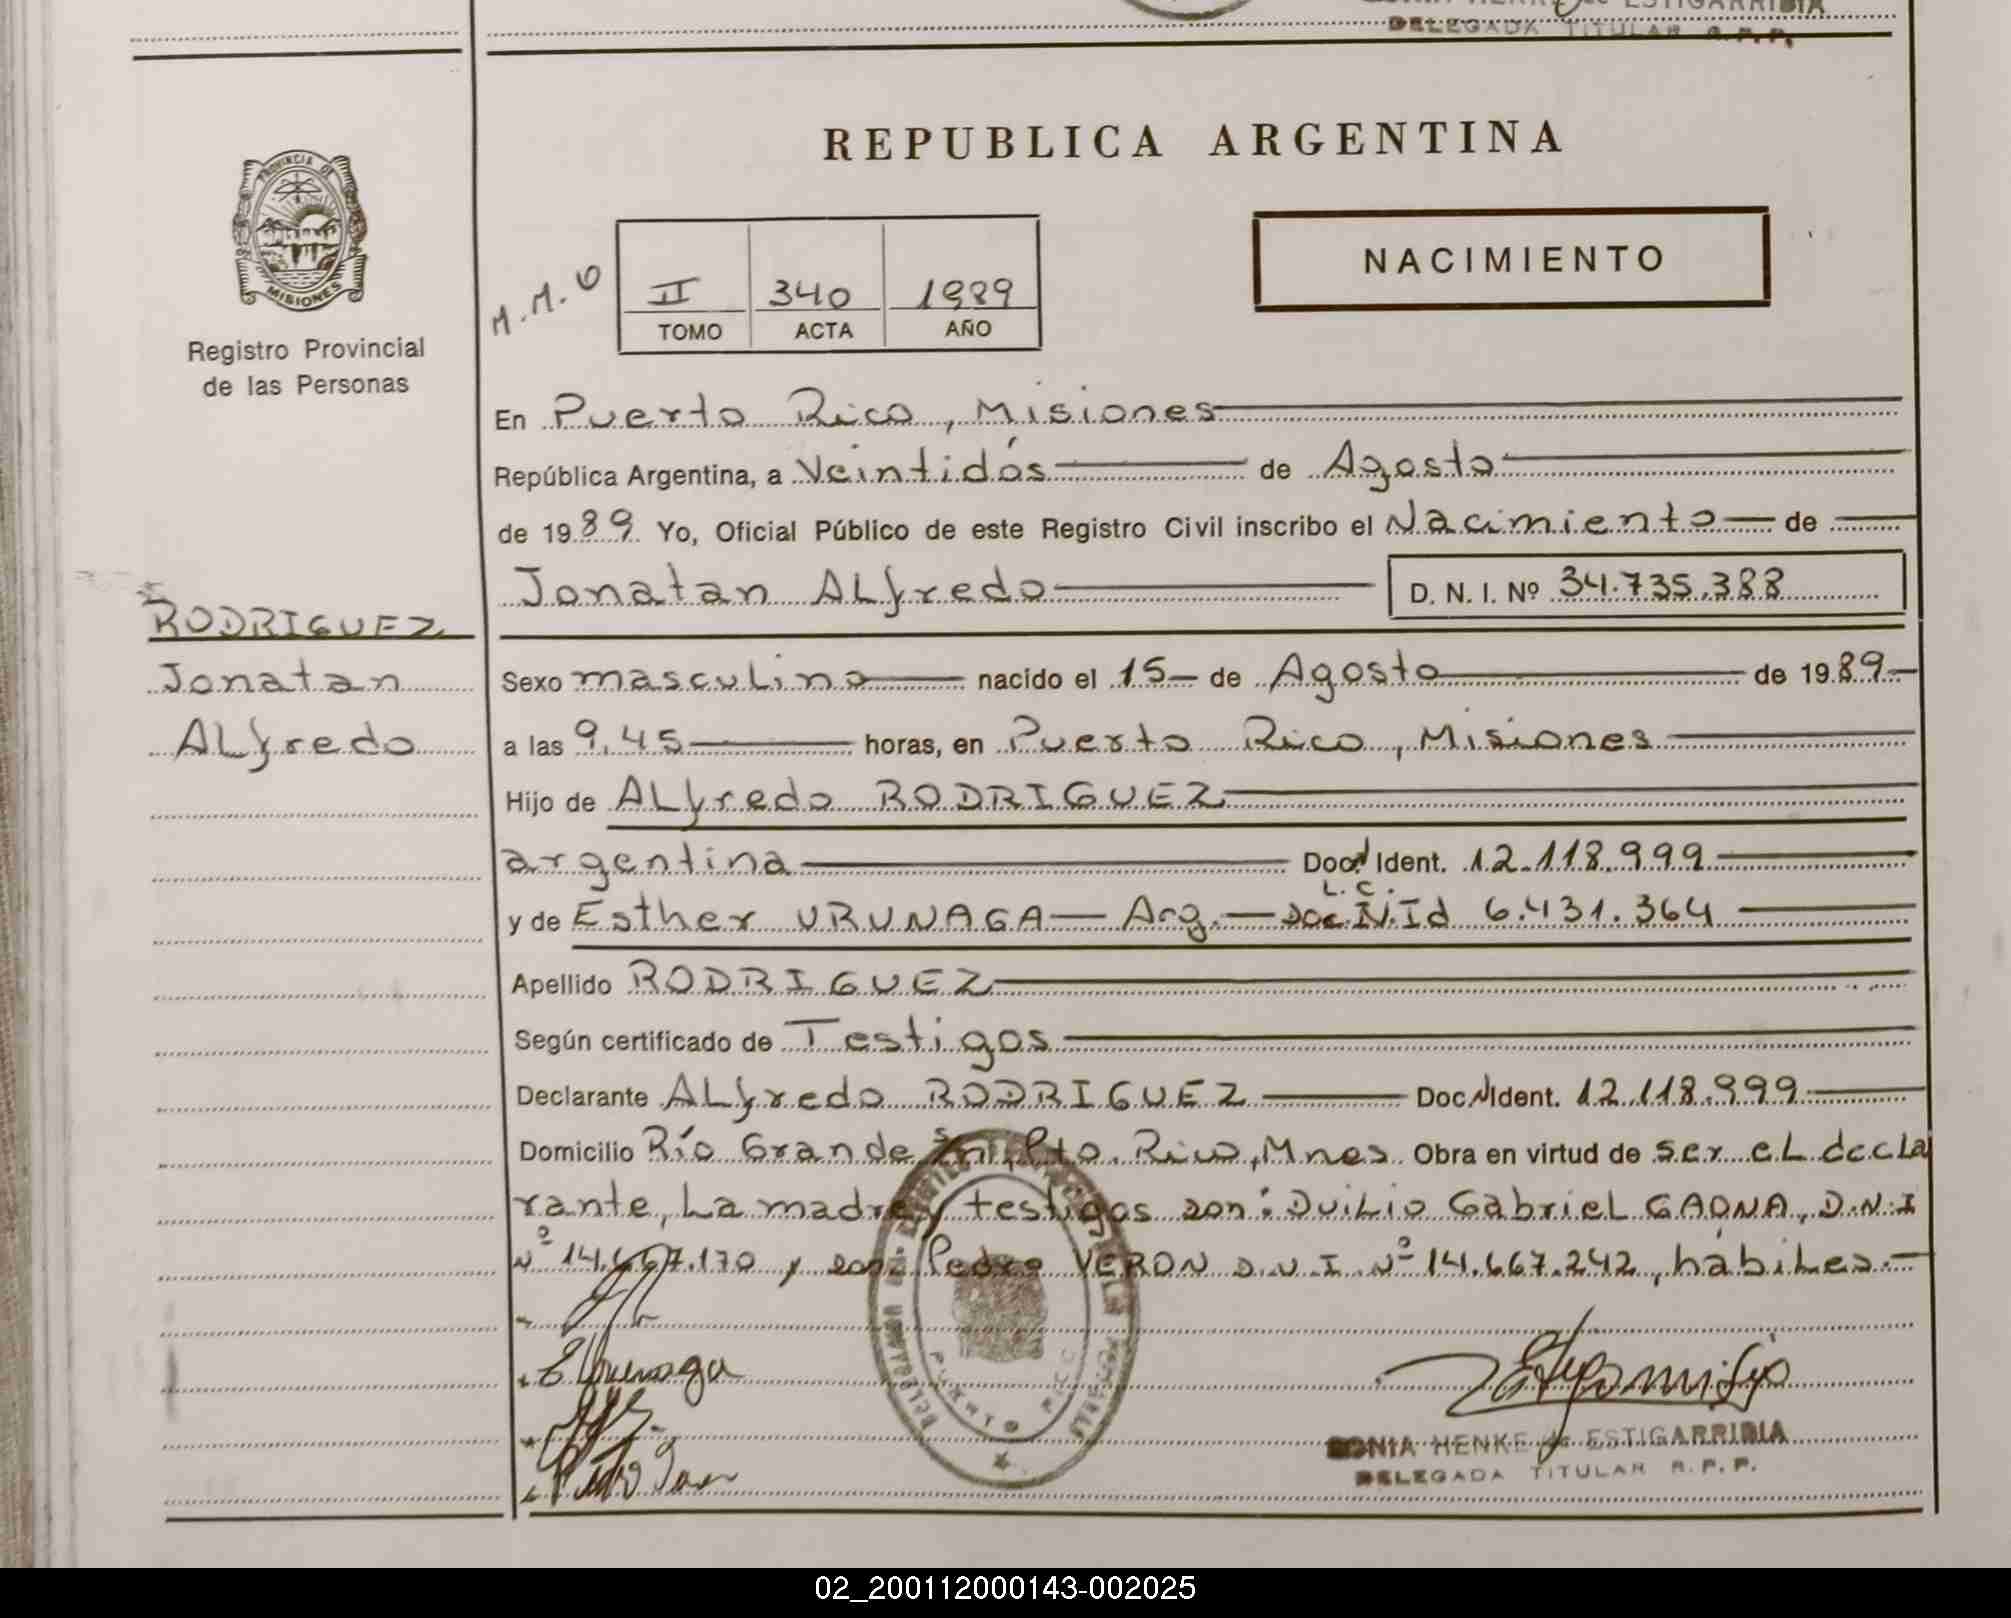 DELEGADA TITULAR R.P.P.
PROVINCIA DE
MISIONES
Registro Provincial
de las Personas
REPUBLICA ARGENTINA
NACIMIENTO
II 340 1989
TOMO ACTA AÑO
En Puerto Rico, Misiones
República Argentina, a Veintidós de Agosto
de 1989 Yo, Oficial Público de este Registro Civil inscribo el Nacimiento de
Jonatan ALfredo D. N. I. Nº 34.735.388
RODRIGUEZ
Jonatan
ALfredo
Sexo masculino nacido el 15 de Agosto de 1989
a las 9,45 horas, en Puerto Rico, Misiones
Hijo de ALfredo RODRIGUEZ
argentina Doc. Ident. 12.118.999
L.C.
y de Esther URUNAGA Arg. Doc. N. Id 6.431.364
Apellido RODRIGUEZ
Según certificado de Testigos
Declarante ALfredo RODRIGUEZ Doc. N Ident. 12.118.999
Domicilio Río Grande s/n, Pto. Rico, Mnes Obra en virtud de ser eL decla
rante, La madre y testigos son: DuiLio GabrieL GAONA, D.N.I
Nº 14.667.170 y don Pedro VERON D.N.I. Nº 14.667.242, hábiLes.
E Urunaga
PUERTO RICO
SONIA HENKE de ESTIGARRIBIA
DELEGADA TITULAR R.P.P.
02_200112000143-002025